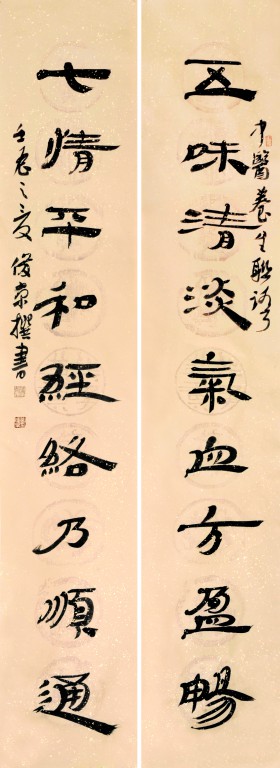 中醫養生聯
五味清淡氣血方盈暢
七情平和經絡乃順通
壬辰之夏俊京撰書